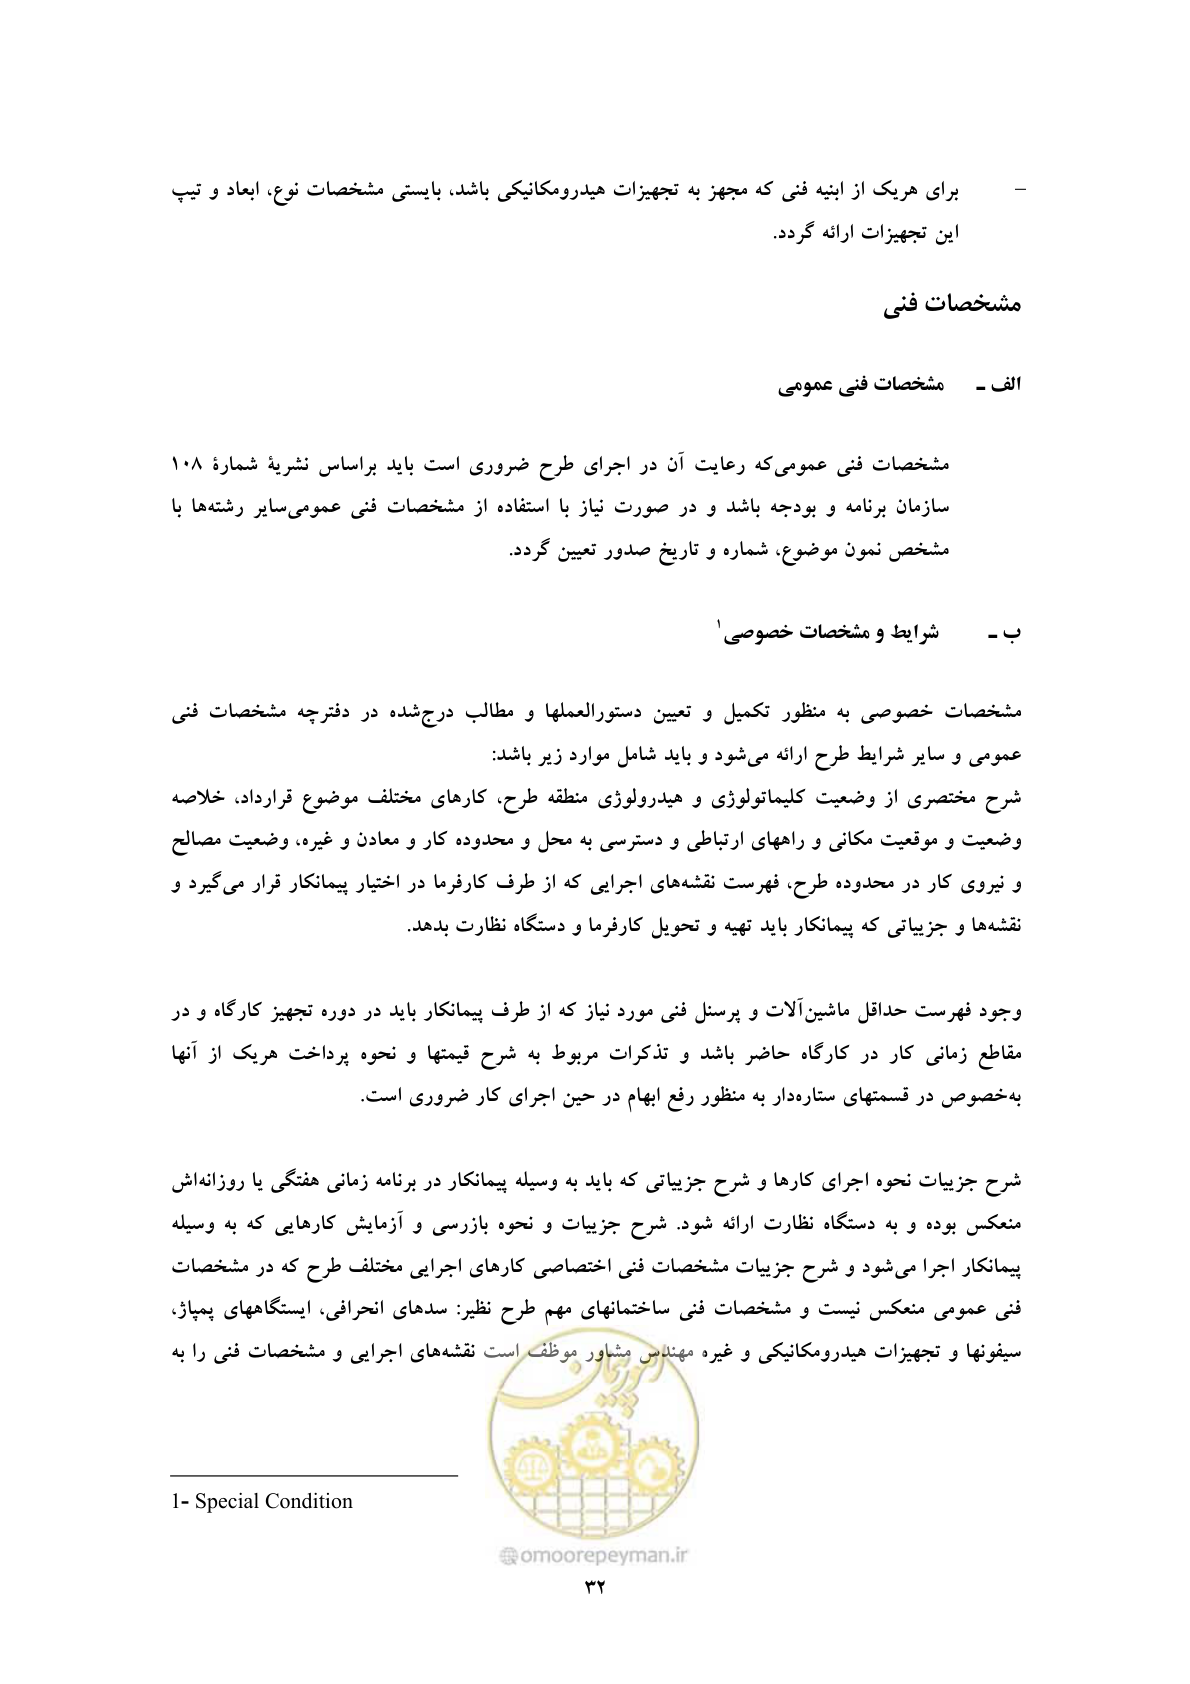 – برای هریک از ابنیه فنی که مجهز به تجهیزات هیدرومکانیکی باشد، بایستی مشخصات نوع، ابعاد و تیپ
این تجهیزات ارائه گردد.
مشخصات فنی
الف ـ مشخصات فنی عمومی
مشخصات فنی عمومی‌که رعایت آن در اجرای طرح ضروری است باید براساس نشریهٔ شمارهٔ ۱۰۸
سازمان برنامه و بودجه باشد و در صورت نیاز با استفاده از مشخصات فنی عمومی‌سایر رشته‌ها با
مشخص نمون موضوع، شماره و تاریخ صدور تعیین گردد.
ب ـ شرایط و مشخصات خصوصی۱
مشخصات خصوصی به منظور تکمیل و تعیین دستورالعملها و مطالب درج‌شده در دفترچه مشخصات فنی
عمومی و سایر شرایط طرح ارائه می‌شود و باید شامل موارد زیر باشد:
شرح مختصری از وضعیت کلیماتولوژی و هیدرولوژی منطقه طرح، کارهای مختلف موضوع قرارداد، خلاصه
وضعیت و موقعیت مکانی و راههای ارتباطی و دسترسی به محل و محدوده کار و معادن و غیره، وضعیت مصالح
و نیروی کار در محدوده طرح، فهرست نقشه‌های اجرایی که از طرف کارفرما در اختیار پیمانکار قرار می‌گیرد و
نقشه‌ها و جزییاتی که پیمانکار باید تهیه و تحویل کارفرما و دستگاه نظارت بدهد.
وجود فهرست حداقل ماشین‌آلات و پرسنل فنی مورد نیاز که از طرف پیمانکار باید در دوره تجهیز کارگاه و در
مقاطع زمانی کار در کارگاه حاضر باشد و تذکرات مربوط به شرح قیمتها و نحوه پرداخت هریک از آنها
به‌خصوص در قسمتهای ستاره‌دار به منظور رفع ابهام در حین اجرای کار ضروری است.
شرح جزییات نحوه اجرای کارها و شرح جزییاتی که باید به وسیله پیمانکار در برنامه زمانی هفتگی یا روزانه‌اش
منعکس بوده و به دستگاه نظارت ارائه شود. شرح جزییات و نحوه بازرسی و آزمایش کارهایی که به وسیله
پیمانکار اجرا می‌شود و شرح جزییات مشخصات فنی اختصاصی کارهای اجرایی مختلف طرح که در مشخصات
فنی عمومی منعکس نیست و مشخصات فنی ساختمانهای مهم طرح نظیر: سدهای انحرافی، ایستگاههای پمپاژ،
سیفونها و تجهیزات هیدرومکانیکی و غیره مهندس مشاور موظف است نقشه‌های اجرایی و مشخصات فنی را به
امور پیمان
1- Special Condition
@omoorepeyman.ir
۳۲